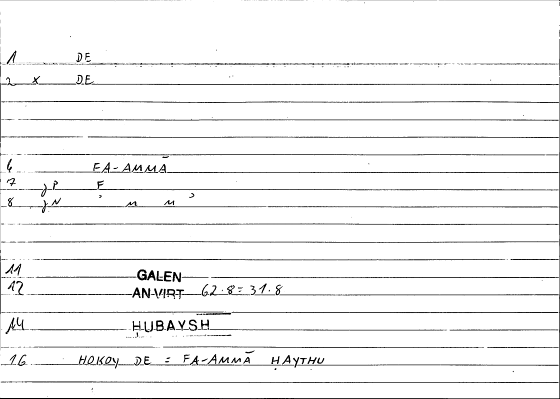 1 DE
2 x DE
6 FA-AMMĀ
7 jP F
8 jN ' m m '
11 GALEN
12 AN.VIRT 62.8 = 31.8
14 ḤUBAYSH
16 HOKOY DE = FA-AMMĀ ḤAYTHU